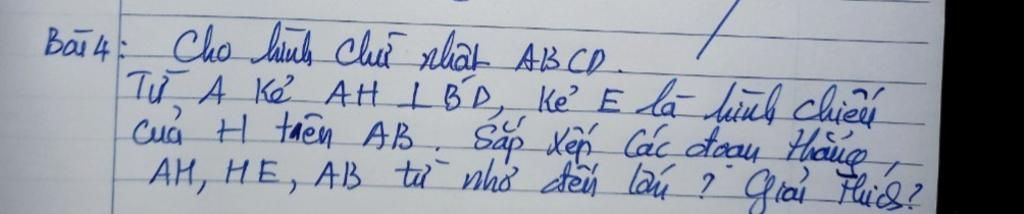 Bài 4: Cho hình chữ nhật ABCD.
Từ A kẻ AH ⊥ BD, kẻ E là hình chiếu
của H trên AB. Sắp xếp các đoạn thẳng,
AH, HE, AB từ nhỏ đến lớn? Giải thích?